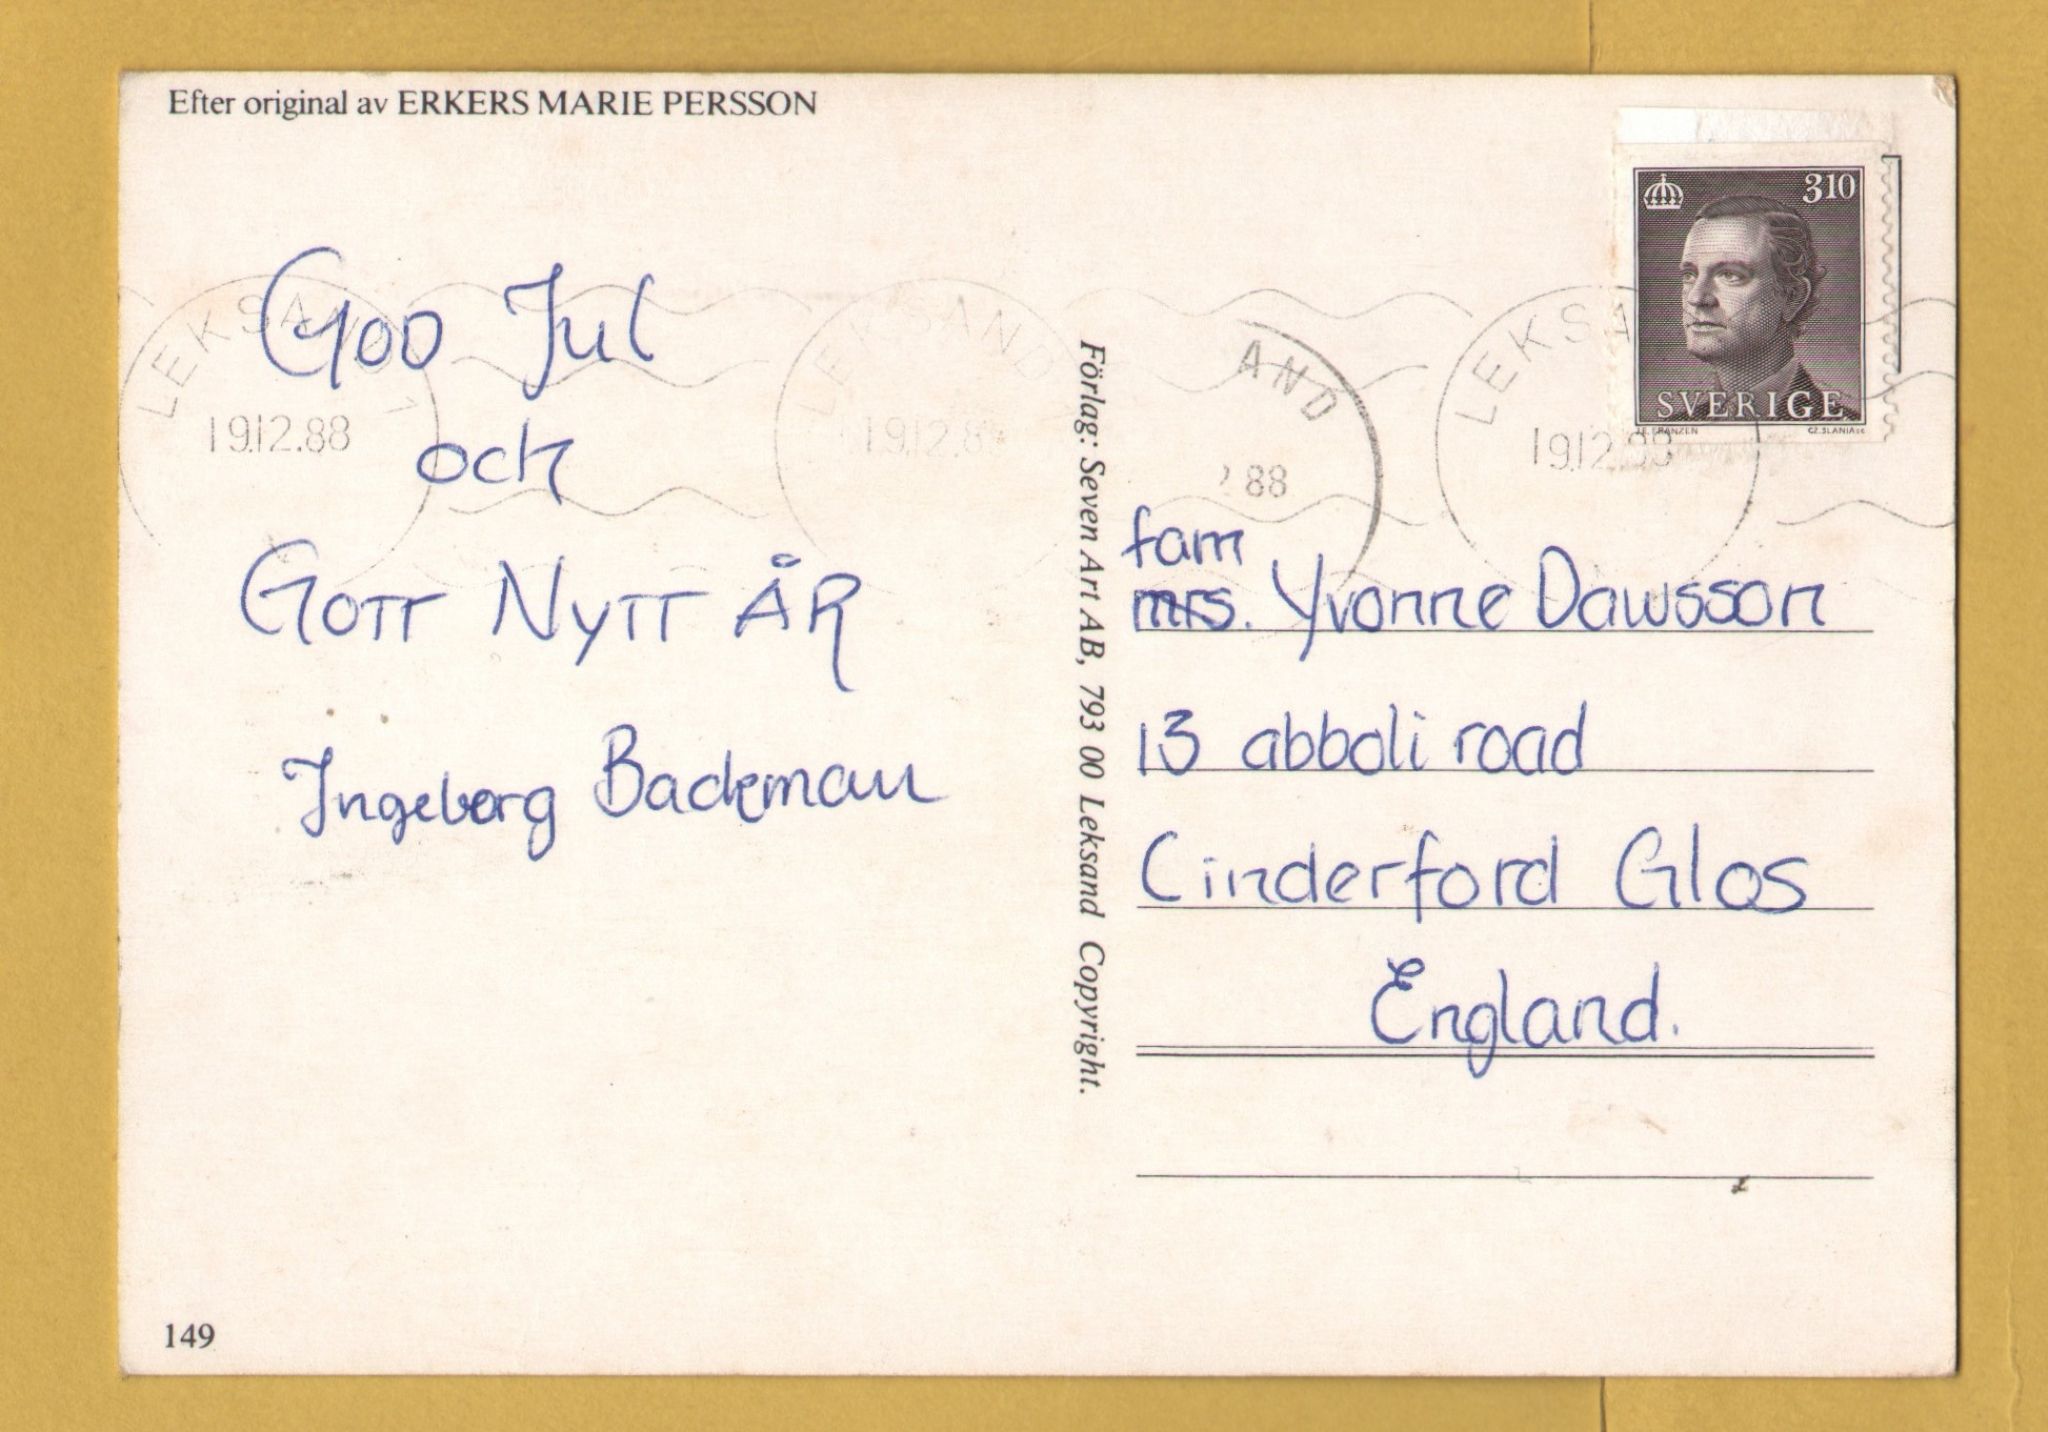 Efter original av ERKERS MARIE PERSSON
310
SVERIGE
CZ.SLANIA sc
LEKSAND 1
19.12.88
LEKSAND
19.12.8
AND
2 88
LEKSA
19.12.88
God Jul
och
GOTT NYTT ÅR
Ingeborg Backman
Förlag: Seven Art AB, 793 00 Leksand Copyright.
fam
mrs. Yvonne Dawsson
13 abboli road
Cinderford Glos
England.
149